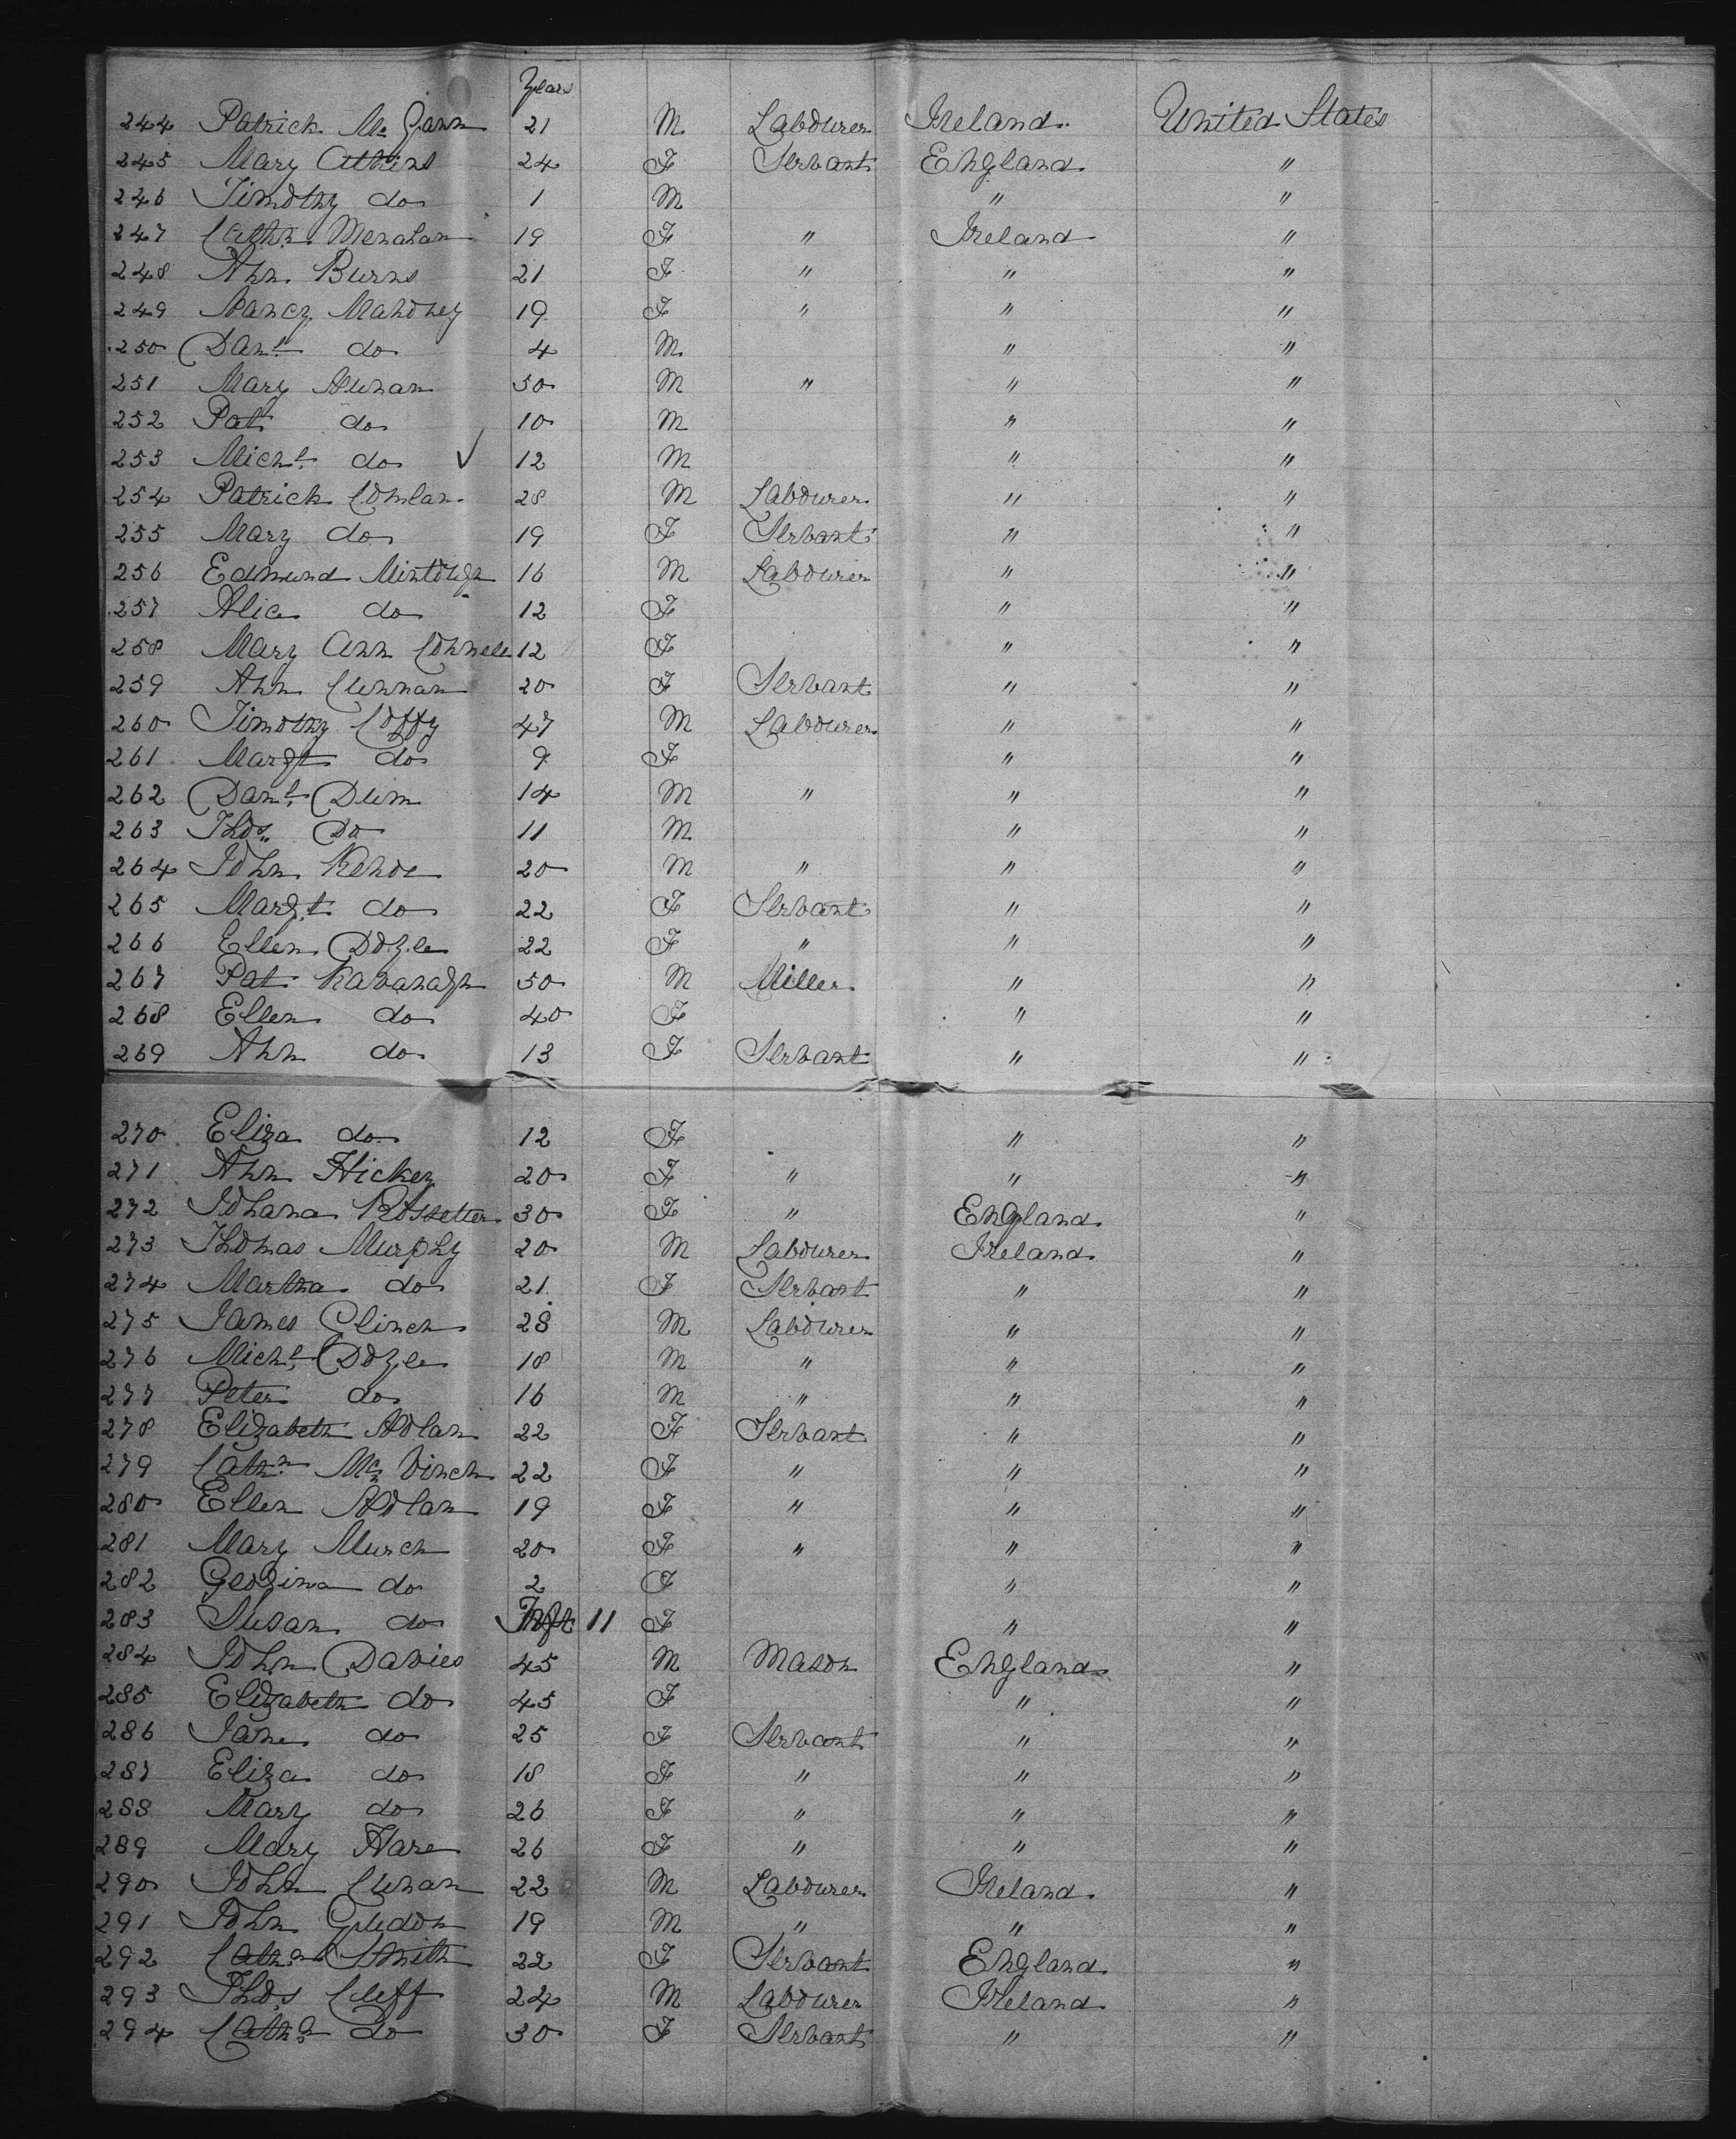 Years
244 Patrick Mc Gann 21 M Labourer Ireland United States
245 Mary Atkins 24 F Servant England "
246 Timothy do 1 M " "
247 Cathn Menahan 19 F " Ireland "
248 Ann Burns 21 F " " "
249 Nancy Mahoney 19 F " " "
250 Danl do 4 M " "
251 Mary 50 M " " "
252 Pat do 10 M " "
253 Michl do ✓ 12 M " "
254 Patrick Conlan 28 M Labourer " "
255 Mary do 19 F Servant " "
256 Edmund 16 M Labourer " "
257 Alice do 12 F " "
258 Mary Ann Connell 12 F " "
259 Ann 20 F Servant " "
260 Timothy Coffy 47 M Labourer " "
261 Margt do 9 F " "
262 Danl 14 M " " "
263 Thos Do 11 M " "
264 John Kehoe 20 M " " "
265 Margt do 22 F Servant " "
266 Ellen Doyle 22 F " " "
267 Pat Kavanagh 50 M Miller " "
268 Ellen do 40 F " "
269 Ann do 13 F Servant " "
270 Eliza do 12 F " "
271 Ann Hickey 20 F " " "
272 Johana Rossetter 30 F " England "
273 Thomas Murphy 20 M Labourer Ireland "
274 Martha do 21 F Servant " "
275 James Clinch 28 M Labourer " "
276 Michl Doyle 18 M " " "
277 Peter do 16 M " " "
278 Elizabeth Nolan 22 F Servant " "
279 Cathn Mc Vinch 22 F " " "
280 Ellen Nolan 19 F " " "
281 Mary Murch 20 F " " "
282 Geogina do 2 F " "
283 Susan do Inft 11 F " "
284 John Davies 45 M Mason England "
285 Elizabeth do 45 F " "
286 Jane do 25 F Servant " "
287 Eliza do 18 F " " "
288 Mary do 26 F " " "
289 Mary Hare 26 F " " "
290 John 22 M Labourer Ireland "
291 John 19 M " " "
292 Cathn Smith 22 F Servant England "
293 Thos Cleff 24 M Labourer Ireland "
294 Cathn do 30 F Servant " "